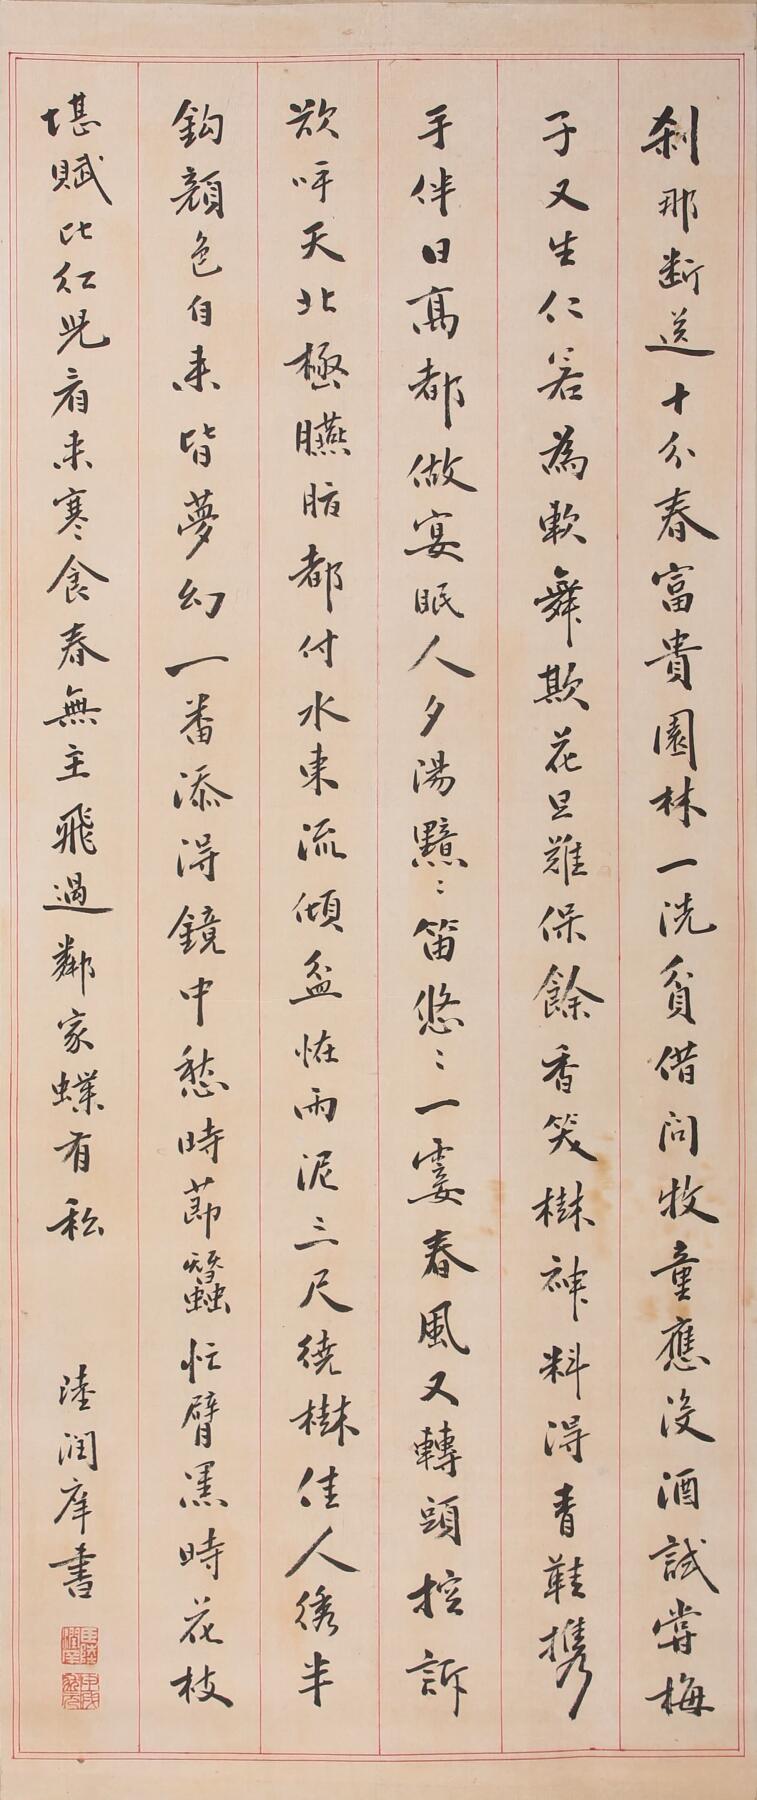 刹那断送十分春富貴園林一洗貧借問牧童應没酒試嘗梅
子又生仁若為軟舞欺花旦難保餘香笑樹神料得青鞋攜
手伴日高都做宴眠人夕湯黯〻笛悠〻一霎春風又轉頭控訴
欲呼天北極臙脂都付水東流傾盆恠雨泥三尺繞樹佳人綉半
鈎顔色自来皆夢幻一番添得鏡中愁時節蠶忙臂黑時花枝
堪賦比紅兒看来寒食春無主飛過鄰家蝶有私
陸潤庠書
臣陸潤庠
甲戌狀元